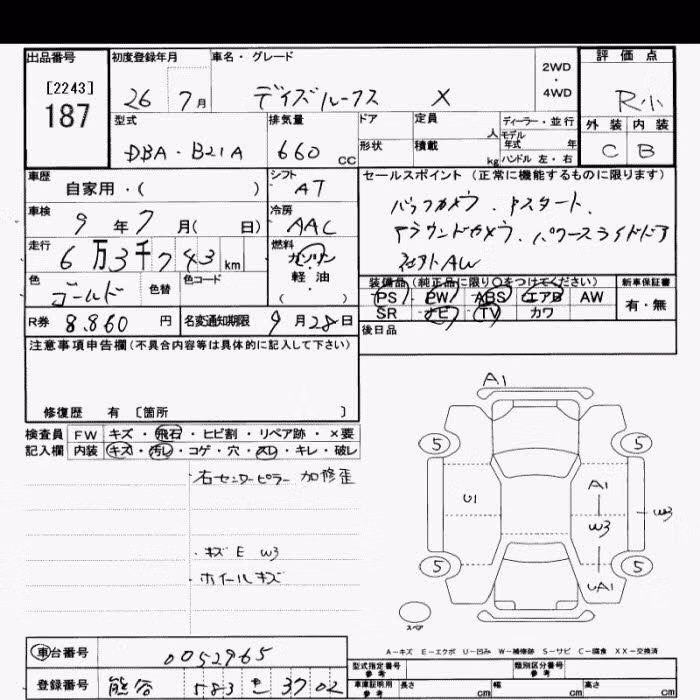 出品番号 初度登録年月 車名・グレード 2WD・4WD 評価点
[2243]
187
26 7月 デイズルークス X R小
型式 排気量 ドア 定員 人 ディーラー・並行 外装 内装
モデル年式 年
DBA・B21A 660CC 形状 積載 kg ハンドル 左・右 C B
車歴 シフト セールスポイント(正常に機能するものに限ります)
自家用・( ) AT
バックカメラ、Pスタート、
車検 冷房
9年7月( 日) AAC
アラウンドカメラ、パワースライドドア
走行 燃料
6万3千743km ガソリン・軽油・( )
社外AW
色 色替 色コード
ゴールド
装備品(純正品に限り○をつけてください) 新車保証書
PS・PW・ABS・エアB・AW 有・無
SR・ナビ・TV・カワ
R券 8.860円 名変通知期限 9月28日
後日品
注意事項申告欄(不具合内容等は具体的に記入して下さい)
修復歴 有 [箇所 ]
検査員 FW キズ・飛石・ヒビ割・リペア跡・×要
記入欄 内装 キズ・汚レ・コゲ・穴・スレ・キレ・破レ
・右センターピラー加修歪
・キズ E W3
・ホイールキズ
A1
5 5
U1 A1 W3 W3
5 5
UA1
スペア
A-キズ E-エクボ U-凹み W-補修跡 S-サビ C-腐食 XX-交換済
車台番号 0052965
登録番号 熊谷 583 37 02
型式指定番号 参考 類別区分番号 参考
車庫証明用 参考 長さ cm 幅 cm 高さ cm